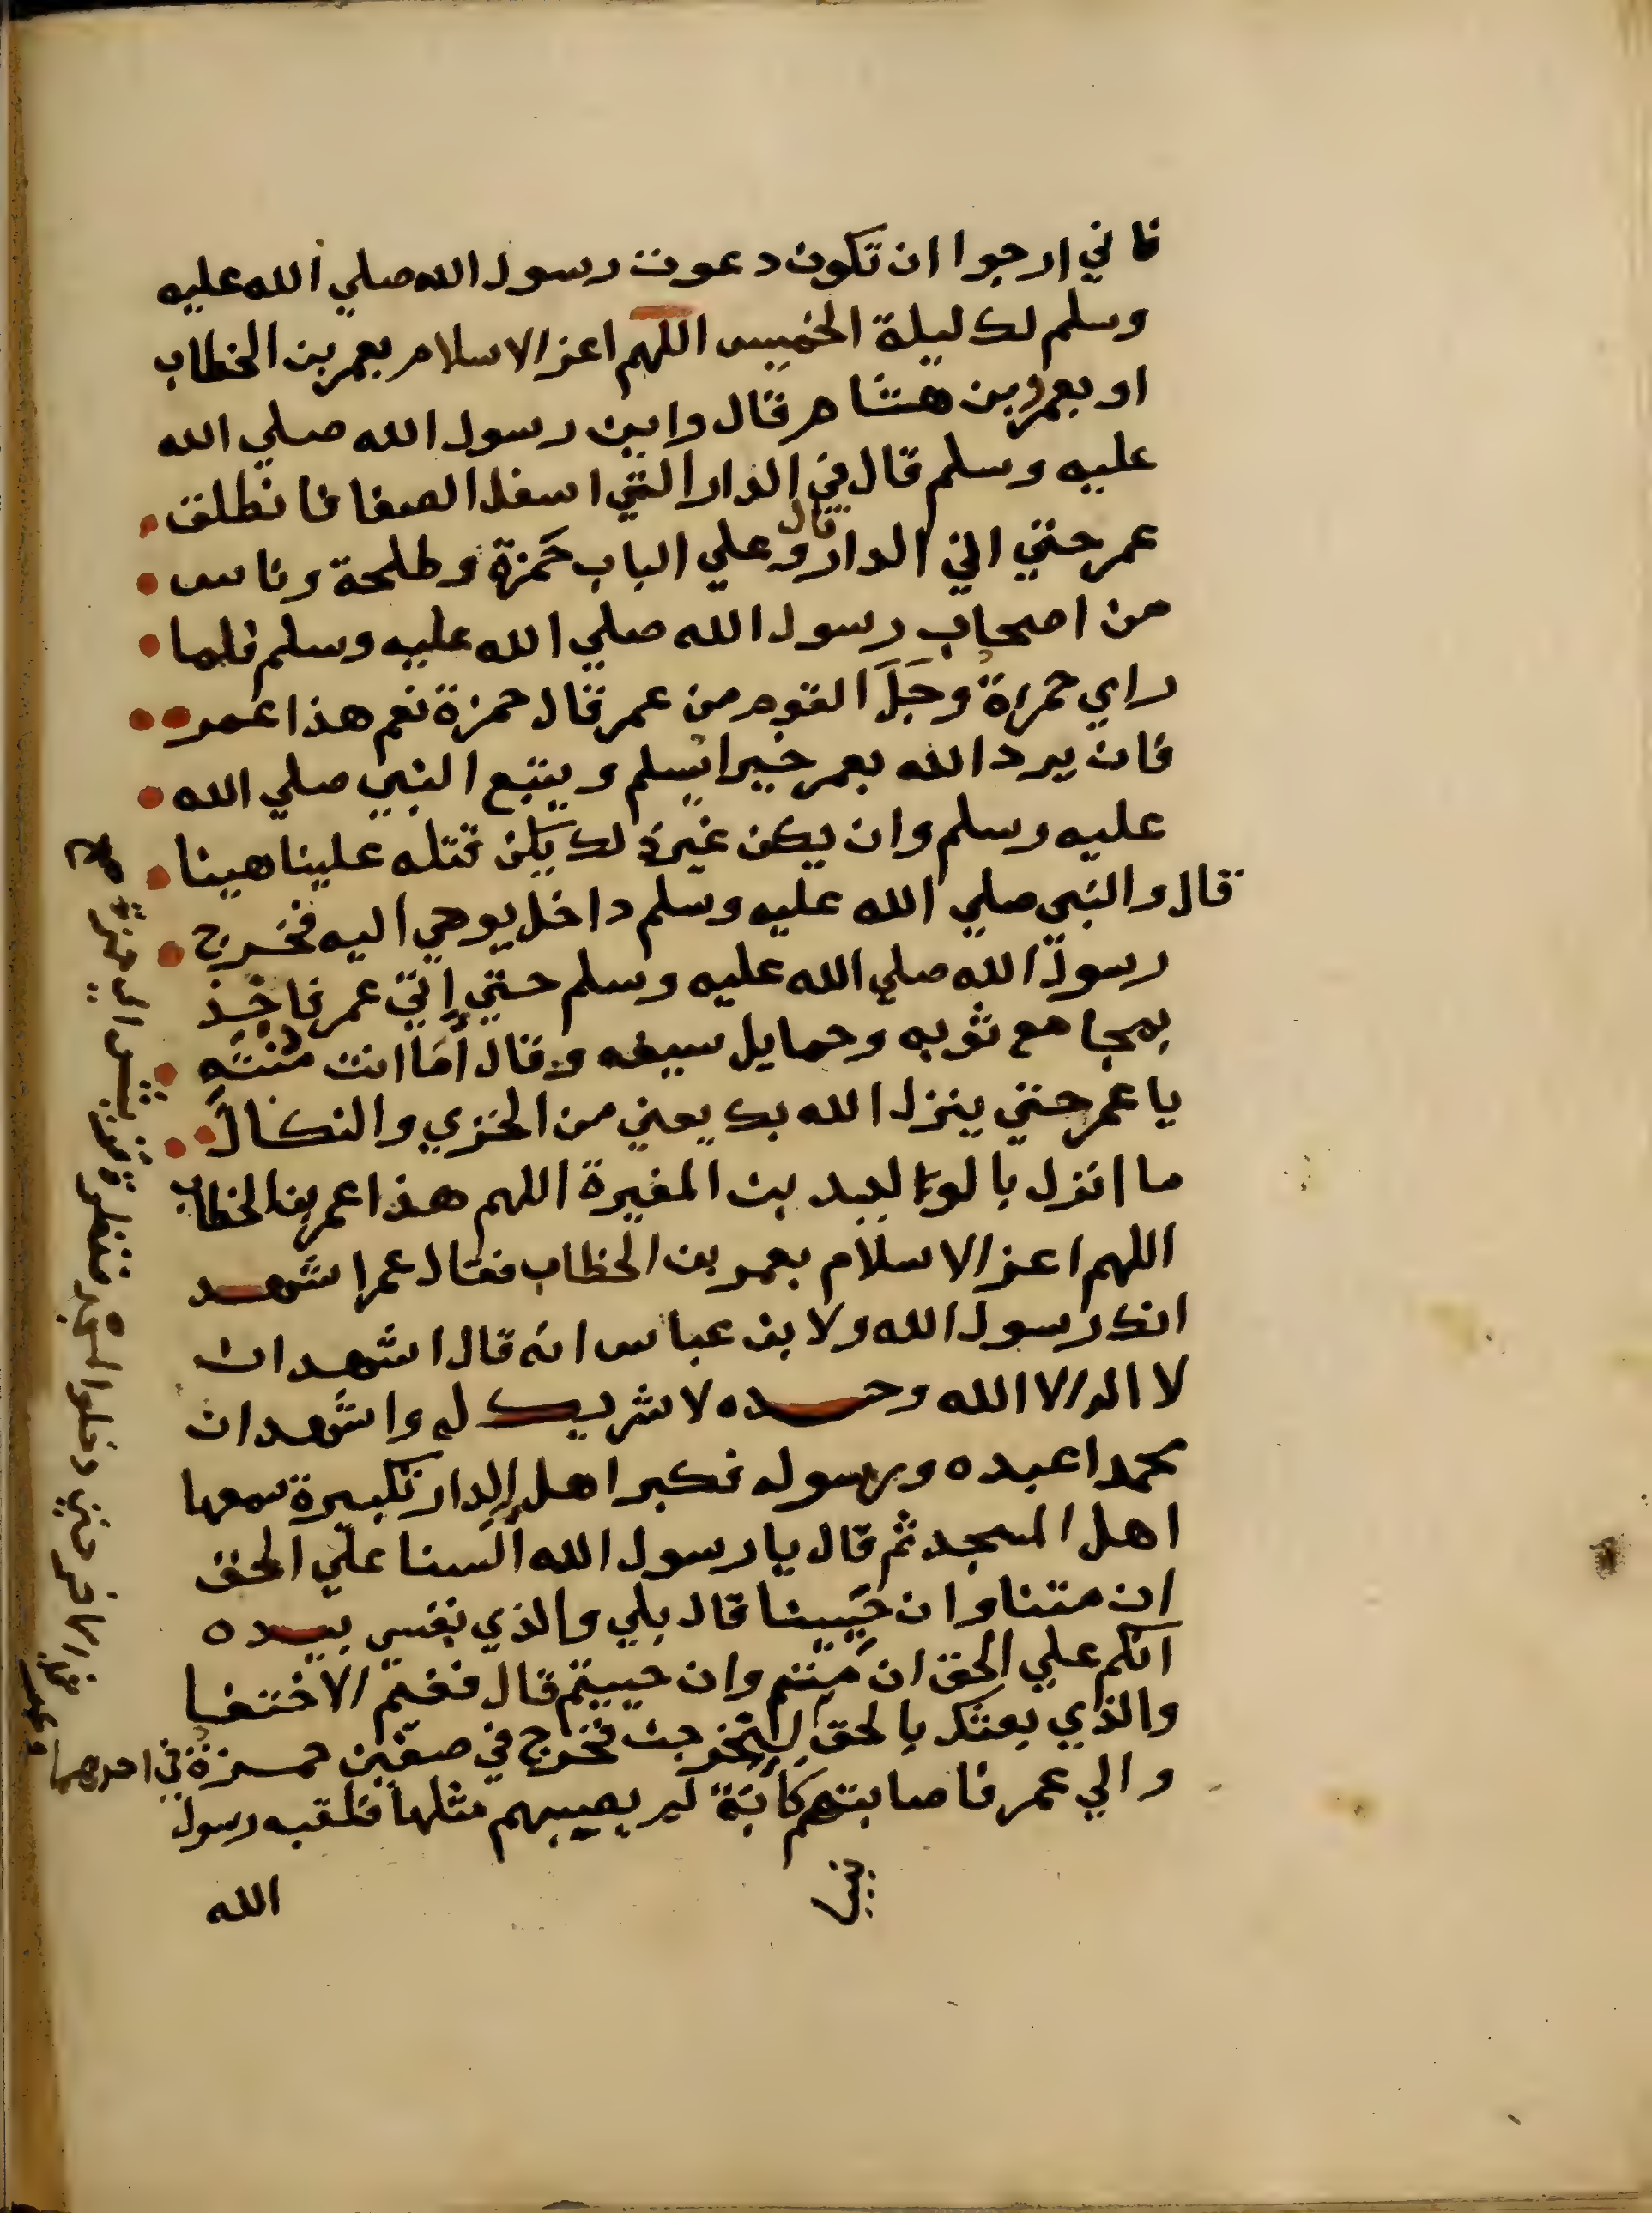 فاني ارجوا ان تكون دعوت رسول الله صلي الله عليه
وسلم لك ليلة الخميس اللهم اعز الاسلام بعمر بن الخطاب
او بعمرو بن هشام قال واين رسول الله صلي الله
عليه وسلم قال في الدار التي اسفل الصفا فانطلق
عمر حتي اتي الدار قال وعلي الباب حَمزة وطلحة وناس
من اصحاب رسول الله صلي الله عليه وسلم فلما
راي حمزةُ وَجَلَ القوم من عمر قال حمزة نعم هذا عمر
فان يرد الله بعمر خيرا يسلم ويتبع النبي صلي الله
عليه وسلم وان يكن غير ذلك يكن قتله علينا هينا
قال والنبي صلي الله عليه وسلم داخل يوحي اليه فخرج
رسول الله صلي الله عليه وسلم حتي اتي عمر فاخذ
بمجامع ثوبه وحمايل سيفه وقال أمَا انت منته
يا عمر حتي ينزل الله بك يعني من الخزي والنكال
ما انزل بالوليد بن المغيرة اللهم هذا عمر بن الخطاب
اللهم اعز الاسلام بعمر بن الخطاب فقال عمر اشهد
انك رسول الله ولابن عباس انه قال اشهد ان
لا اله الا الله وحده لا شريك له واشهد ان
محمدا عبده ورسوله فكبر اهل الدار تكبيرة سمعها
اهل المسجد ثم قال يا رسول الله ألسنا علي الحق
ان متنا وان حَيينا قال بلي والذي نفسي بيده
انكم علي الحق ان متتم وان حييتم قال ففيم الاختفا
والذي بعثك بالحق لتخرجن فخرج في صفين حمزةُ في احدهما
وعمر في الاخر حتي دخلوا المسجد فنظرت قريش الي حمزة
والي عمر فاصابتهم كآبَة لم يصيبهم مثلها فلقبه رسول
الله